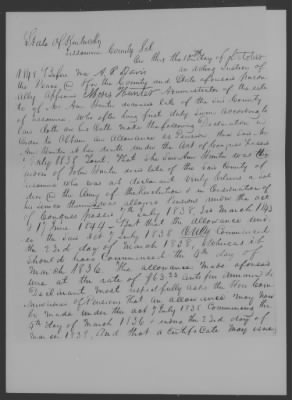 State of Kentucky
Jessamine County Sct.
On this 18th day of October
1849 Before me A. P. Davis an acting Justice of
the Peace for the County and State aforesaid person
ally appeared Moses Hunter Administrator of the esta
te of Mrs Ann Hunter deceased late of the said County
of Jessamine who after being first duly sworn according to
Law doth on his oath make the following Declaration in
order to obtain an allowance as Pension that said Mrs
Ann Hunter at her death under the Act of Congress passed
July 1838. That she Ann Hunter was the
widow of John Hunter late of the said County of
Jessamine who was at
in the Army of the Revolution & in consideration of
his services allowed Pension under the act
of Congress passed 7th July 1838, 3rd March 1843
& 17 June 1844 - That the allowance under
the said act 7 July 1838 Only Commenced
the 23rd day of March 1838, whereas it
should have Commenced the 4th day of
March 1836. The allowance made aforesaid
was at the rate of per annum
Declarant most respectfully asks the Hon Com
missioner of Pensions that an allowance may now
be made under the act 7 July 1838 Commencing the
4th day of March 1836 & ending the 23rd day of
March 1838, And that a Certificate may issue